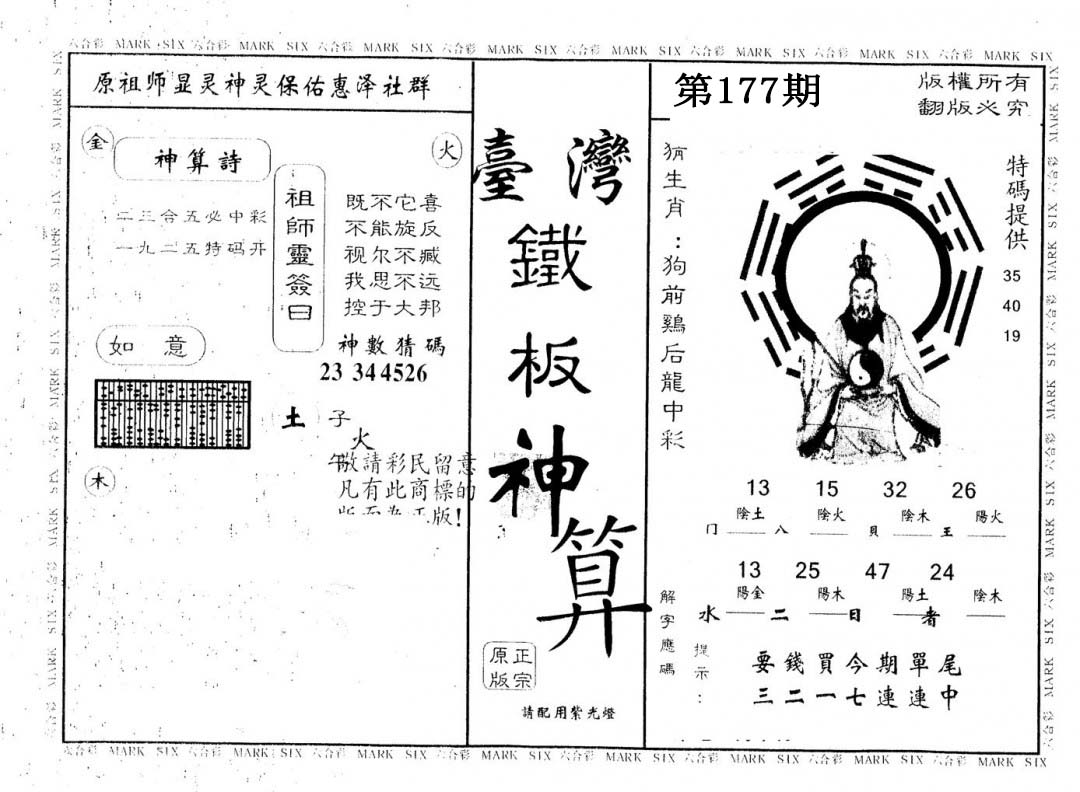 六合彩 MARK SIX 六合彩 MARK SIX 六合彩 MARK SIX 六合彩 MARK SIX 六合彩 MARK SIX 六合彩 MARK SIX 六合彩 MARK SIX 六合彩 MARK SIX
原祖师显灵神灵保佑惠泽社群
金
神算詩
火
二三合五必中彩
一九二五特码开
祖師靈簽曰
既不它喜
不能旋反
视尔不臧
我思不远
控于大邦
如意
神數猜碼
23 344526
土 子
火
午敬請彩民留意
凡有此商標的
版!
木
臺灣
鐵
板
神
算
正宗
原版
請配用紫光燈
第177期
版權所有
翻版必究
猜生肖:狗前鷄后龍中彩
特碼提供
35
40
19
13 15 32 26
陰土 陰火 陰木 陽火
门 八 貝 王
13 25 47 24
陽金 陽木 陽土 陰木
水 二 日 者
解字應碼
提示:
要錢買今期單尾
三二一七連連中
六合彩 MARK SIX 六合彩 MARK SIX 六合彩 MARK SIX 六合彩 MARK SIX 六合彩 MARK SIX 六合彩 MARK SIX 六合彩 MARK SIX 六合彩 MARK SIX